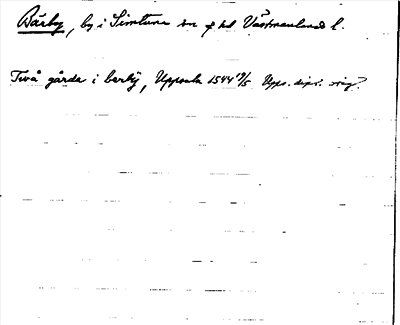 Bärby, by i Simtuna sn o hd Västmanlands l.
Två gårda i berby, Uppsala 1544 19/5 Upps. dipl. orig.